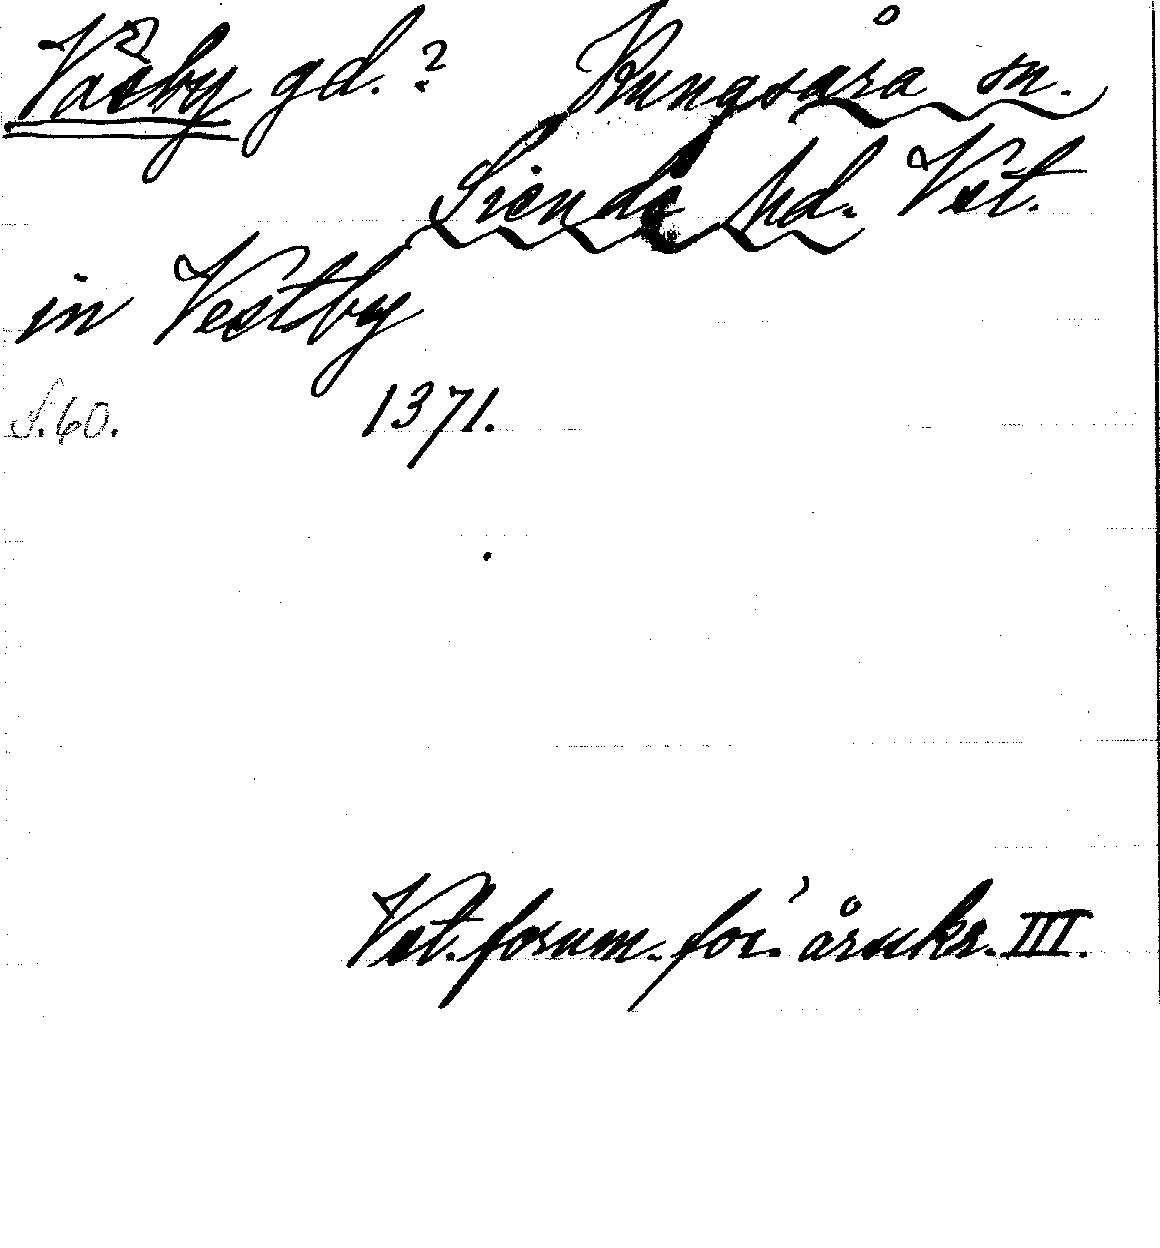 Väsby gd.? Kungsåra sn.
Siende hd. Vst.
in Vestby
S. 60. 1371.
Vst. fornm. för. årsskr. III.